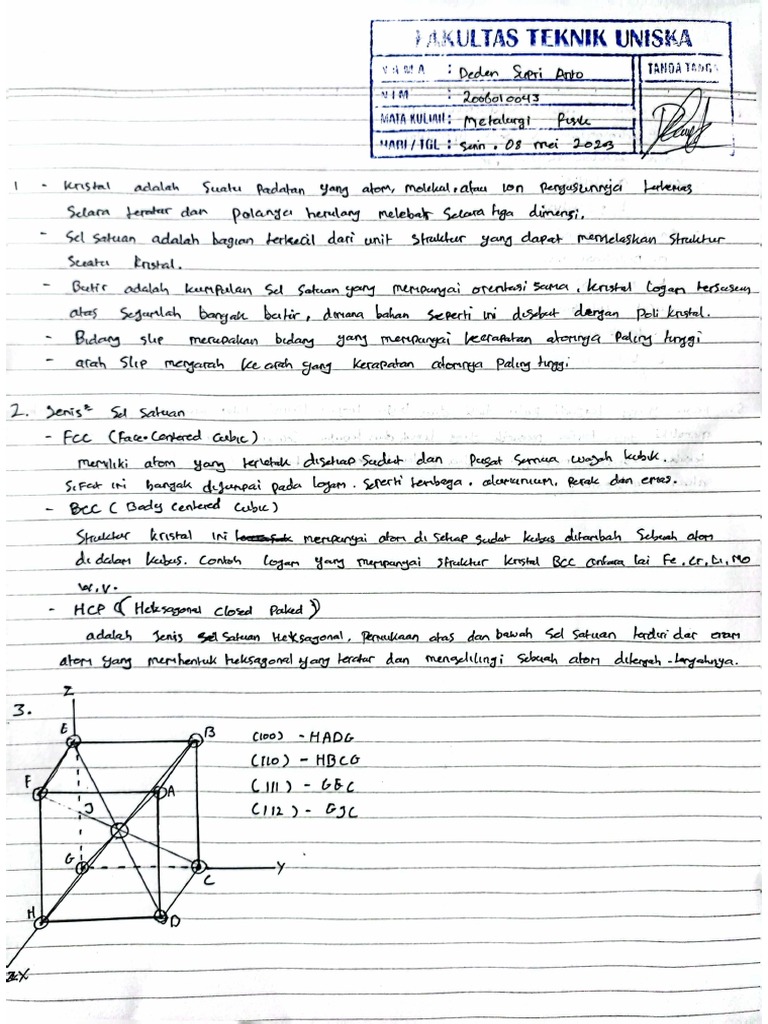 FAKULTAS TEKNIK UNISKA
NAMA : Deden Supri Anto
NIM : 2006010043
MATA KULIAH : Metalurgi Fisik
HARI / TGL : Senin, 08 mei 2023
TANDA TANGAN
1 - Kristal adalah Suatu Padatan yang atom, molekul, atau ion penyusunnya terkemas
Secara teratur dan Polanya berulang melebar Secara tiga dimensi.
- Sel Satuan adalah bagian terkecil dari unit struktur yang dapat menjelaskan Struktur
Suatu Kristal.
- Butir adalah kumpulan Sel Satuan yang mempunyai orentasi sama, Kristal Logam tersusun
atas Sejumlah banyak butir, dimana bahan seperti ini disebut dengan Poli kristal.
- Bidang slip merupakan bidang yang mempunyai kerapatan atomnya Paling tinggi
- arah Slip mengarah ke arah yang Kerapatan atomnya Paling tinggi
2. Jenis² Sel Satuan
- FCC (Face-Centered Cubic)
memiliki atom yang terletak disetiap Sudut dan Pusat Semua wajah kubik.
Sifat ini banyak dijumpai pada logam. Seperti tembaga, alumunium, Perak dan emas.
- BCC (Body Centered Cubic)
Struktur kristal ini mempunyai atom di setiap sudut kubus ditambah Sebuah atom
di dalam kubus. Contoh logam yang mempunyai struktur kristal BCC antara lai Fe, Cr, Li, Mo
W, V.
- HCP (Heksagonal Closed Paked)
adalah Jenis Sel Satuan Heksagonal, Permukaan atas dan bawah Sel Satuan terdiri dar enam
atom yang membentuk heksagonal yang teratur dan mengelilingi sebuah atom ditengah-tengahnya.
3.
Z
E
B
F
A
J
G
C
Y
H
D
X
(100) - HADG
(110) - HBCG
(111) - GEC
(112) - GJC